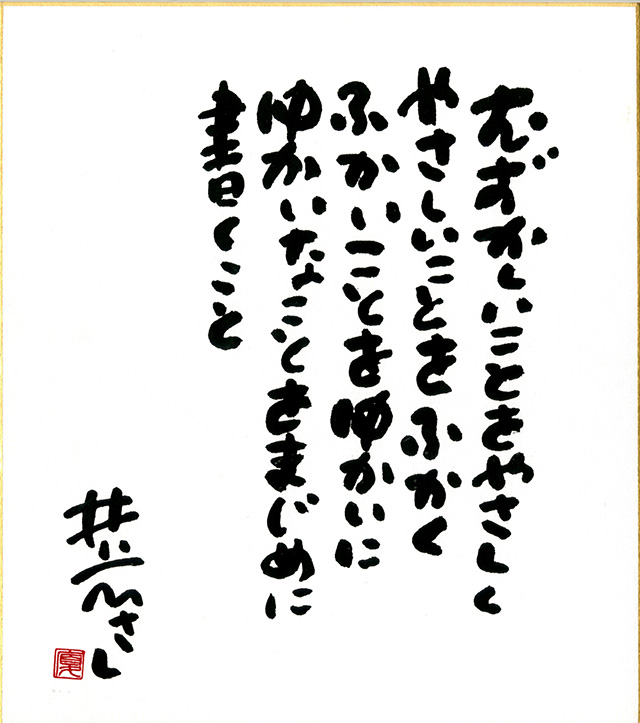 むずかしいことをやさしく
やさしいことをふかく
ふかいことをゆかいに
ゆかいなことをまじめに
書くこと
井上ひさし